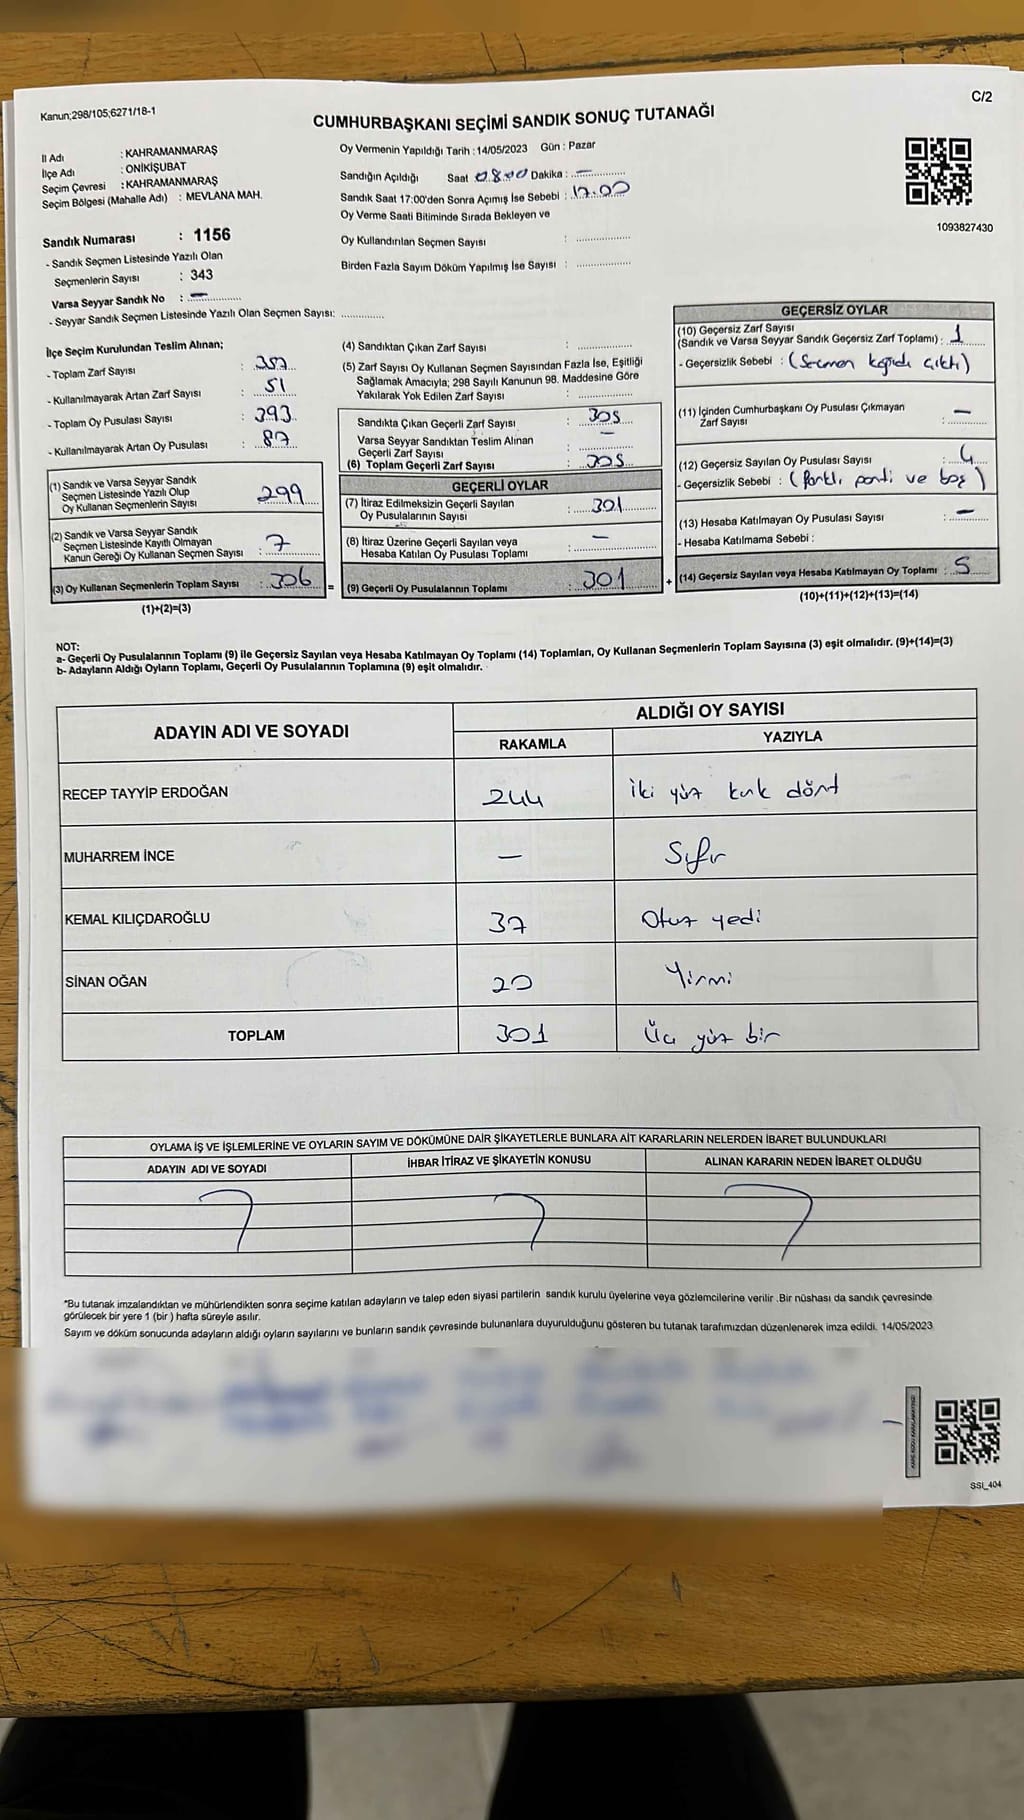 Kanun;298/105;6271/18-1
C/2
CUMHURBAŞKANI SEÇİMİ SANDIK SONUÇ TUTANAĞI
İl Adı : KAHRAMANMARAŞ
İlçe Adı : ONİKİŞUBAT
Seçim Çevresi : KAHRAMANMARAŞ
Seçim Bölgesi (Mahalle Adı) : MEVLANA MAH.
Sandık Numarası : 1156
- Sandık Seçmen Listesinde Yazılı Olan
Seçmenlerin Sayısı : 343
Varsa Seyyar Sandık No : —
- Seyyar Sandık Seçmen Listesinde Yazılı Olan Seçmen Sayısı: ............
Oy Vermenin Yapıldığı Tarih : 14/05/2023 Gün : Pazar
Sandığın Açıldığı Saat 08:00 Dakika : —
Sandık Saat 17:00'den Sonra Açımış İse Sebebi : 17.00
Oy Verme Saati Bitiminde Sırada Bekleyen ve
Oy Kullandırılan Seçmen Sayısı : ...............
Birden Fazla Sayım Döküm Yapılmış İse Sayısı : ...............
1093827430
İlçe Seçim Kurulundan Teslim Alınan;
- Toplam Zarf Sayısı : 357
- Kullanılmayarak Artan Zarf Sayısı : 51
- Toplam Oy Pusulası Sayısı : 393
- Kullanılmayarak Artan Oy Pusulası : 87
(1) Sandık ve Varsa Seyyar Sandık
Seçmen Listesinde Yazılı Olup
Oy Kullanan Seçmenlerin Sayısı : 299
(2) Sandık ve Varsa Seyyar Sandık
Seçmen Listesinde Kayıtlı Olmayan
Kanun Gereği Oy Kullanan Seçmen Sayısı : 7
(3) Oy Kullanan Seçmenlerin Toplam Sayısı : 306
(1)+(2)=(3)
(4) Sandıktan Çıkan Zarf Sayısı : ...............
(5) Zarf Sayısı Oy Kullanan Seçmen Sayısından Fazla İse, Eşitliği
Sağlamak Amacıyla; 298 Sayılı Kanunun 98. Maddesine Göre
Yakılarak Yok Edilen Zarf Sayısı : ...............
Sandıkta Çıkan Geçerli Zarf Sayısı : 305
Varsa Seyyar Sandıktan Teslim Alınan
Geçerli Zarf Sayısı : —
(6) Toplam Geçerli Zarf Sayısı : 305
GEÇERLİ OYLAR
(7) İtiraz Edilmeksizin Geçerli Sayılan
Oy Pusulalarının Sayısı : 301
(8) İtiraz Üzerine Geçerli Sayılan veya
Hesaba Katılan Oy Pusulası Toplamı : —
= (9) Geçerli Oy Pusulalarının Toplamı : 301
GEÇERSİZ OYLAR
(10) Geçersiz Zarf Sayısı
(Sandık ve Varsa Seyyar Sandık Geçersiz Zarf Toplamı) : 1
- Geçersizlik Sebebi : (Seçmen kağıdı çıktı)
(11) İçinden Cumhurbaşkanı Oy Pusulası Çıkmayan
Zarf Sayısı : —
(12) Geçersiz Sayılan Oy Pusulası Sayısı : 4
- Geçersizlik Sebebi : (farklı parti ve boş)
(13) Hesaba Katılmayan Oy Pusulası Sayısı : —
- Hesaba Katılmama Sebebi :
+ (14) Geçersiz Sayılan veya Hesaba Katılmayan Oy Toplamı : 5
(10)+(11)+(12)+(13)=(14)
NOT:
a- Geçerli Oy Pusulalarının Toplamı (9) ile Geçersiz Sayılan veya Hesaba Katılmayan Oy Toplamı (14) Toplamları, Oy Kullanan Seçmenlerin Toplam Sayısına (3) eşit olmalıdır. (9)+(14)=(3)
b- Adayların Aldığı Oyların Toplamı, Geçerli Oy Pusulalarının Toplamına (9) eşit olmalıdır.
ADAYIN ADI VE SOYADI
ALDIĞI OY SAYISI
RAKAMLA YAZIYLA
RECEP TAYYİP ERDOĞAN 244 iki yüz kırk dört
MUHARREM İNCE — Sıfır
KEMAL KILIÇDAROĞLU 37 Otuz yedi
SİNAN OĞAN 20 Yirmi
TOPLAM 301 Üç yüz bir
OYLAMA İŞ VE İŞLEMLERİNE VE OYLARIN SAYIM VE DÖKÜMÜNE DAİR ŞİKAYETLERLE BUNLARA AİT KARARLARIN NELERDEN İBARET BULUNDUKLARI
ADAYIN ADI VE SOYADI İHBAR İTİRAZ VE ŞİKAYETİN KONUSU ALINAN KARARIN NEDEN İBARET OLDUĞU
*Bu tutanak imzalandıktan ve mühürlendikten sonra seçime katılan adayların ve talep eden siyasi partilerin sandık kurulu üyelerine veya gözlemcilerine verilir .Bir nüshası da sandık çevresinde
görülecek bir yere 1 (bir ) hafta süreyle asılır.
Sayım ve döküm sonucunda adayların aldığı oyların sayılarını ve bunların sandık çevresinde bulunanlara duyurulduğunu gösteren bu tutanak tarafımızdan düzenlenerek imza edildi. 14/05/2023
SSI_404